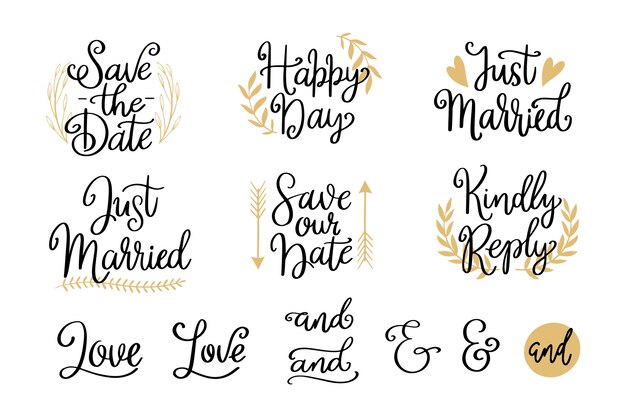 Save
-the-
Date
Happy
Day
Just
Married
Just
Married
Save
our
Date
Kindly
Reply
Love
Love
and
and
&
&
and